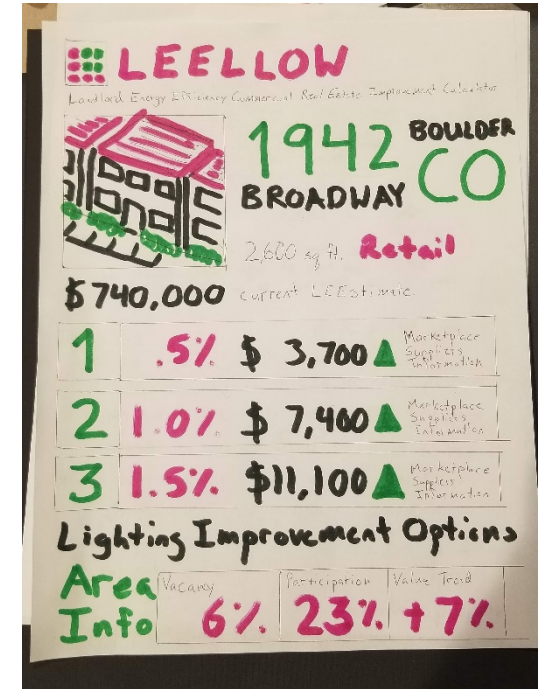 LEELLOW
Landlord Energy Efficiency Commercial Real Estate Improvement Calculator
1942 BOULDER
BROADWAY CO
2,600 sq ft. Retail
$740,000 current LEEstimate
1 .5% $ 3,700 Marketplace Suppliers Information
2 1.0% $ 7,400 Marketplace Suppliers Information
3 1.5% $11,100 Marketplace Suppliers Information
Lighting Improvement Options
Area Info
Vacancy 6%
Participation 23%
Value Trend +7%